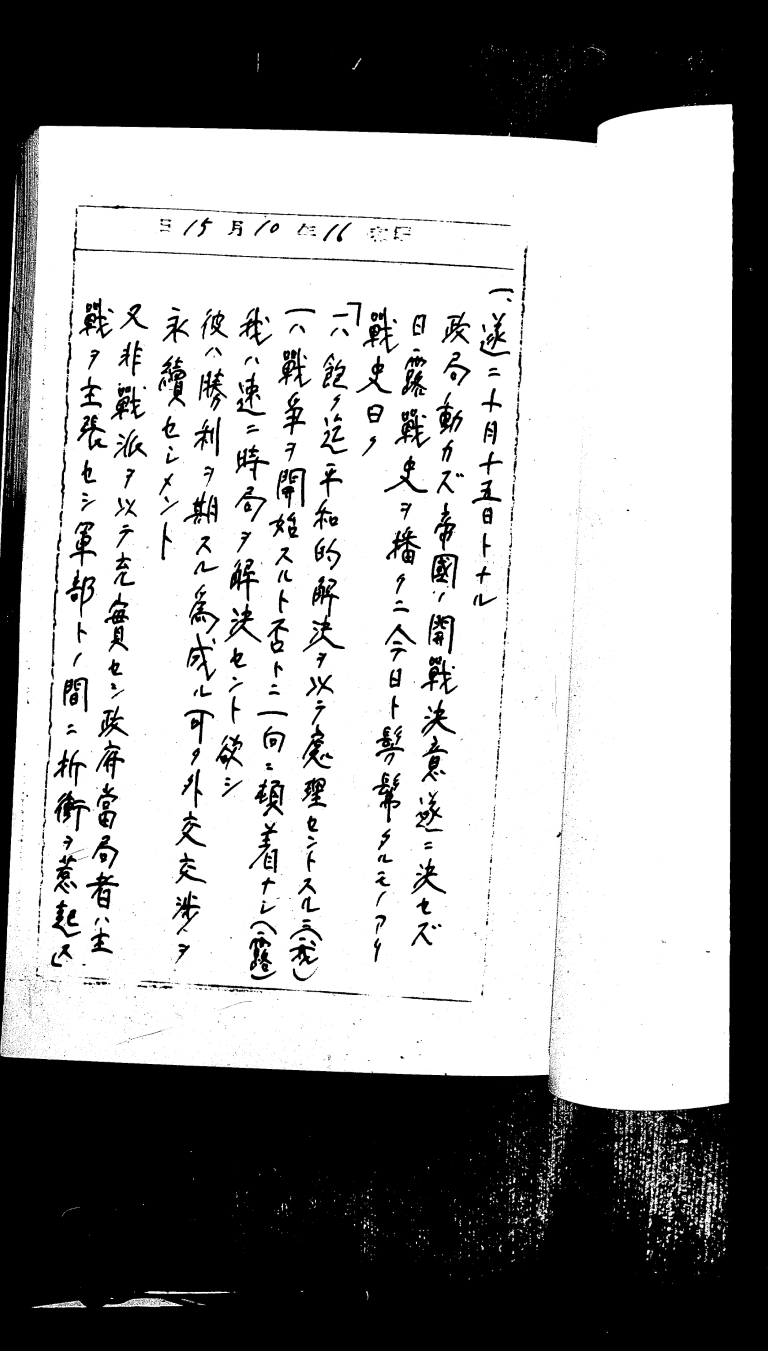 昭和16年10月15日
一、遂ニ十月十五日トナル
政局動カズ帝國ノ開戰決意遂ニ決セズ
日露戰史ヲ播クニ今日ト髣髴タルモノアリ
戰史曰ク
「一ハ飽ク迄平和的解決ヲ以テ處理セントスルニ(我)
一ハ戰爭ヲ開始スルト否トニ一向ニ頓着ナシ(露)
我ハ速ニ時局ヲ解決セント欲シ
彼ハ勝利ヲ期スル爲成ル可ク外交交渉ヲ
永續セシメント
又非戰派ヲ以テ充實セシ政府當局者ハ主
戰ヲ主張セシ軍部トノ間ニ折衝ヲ惹起ス」